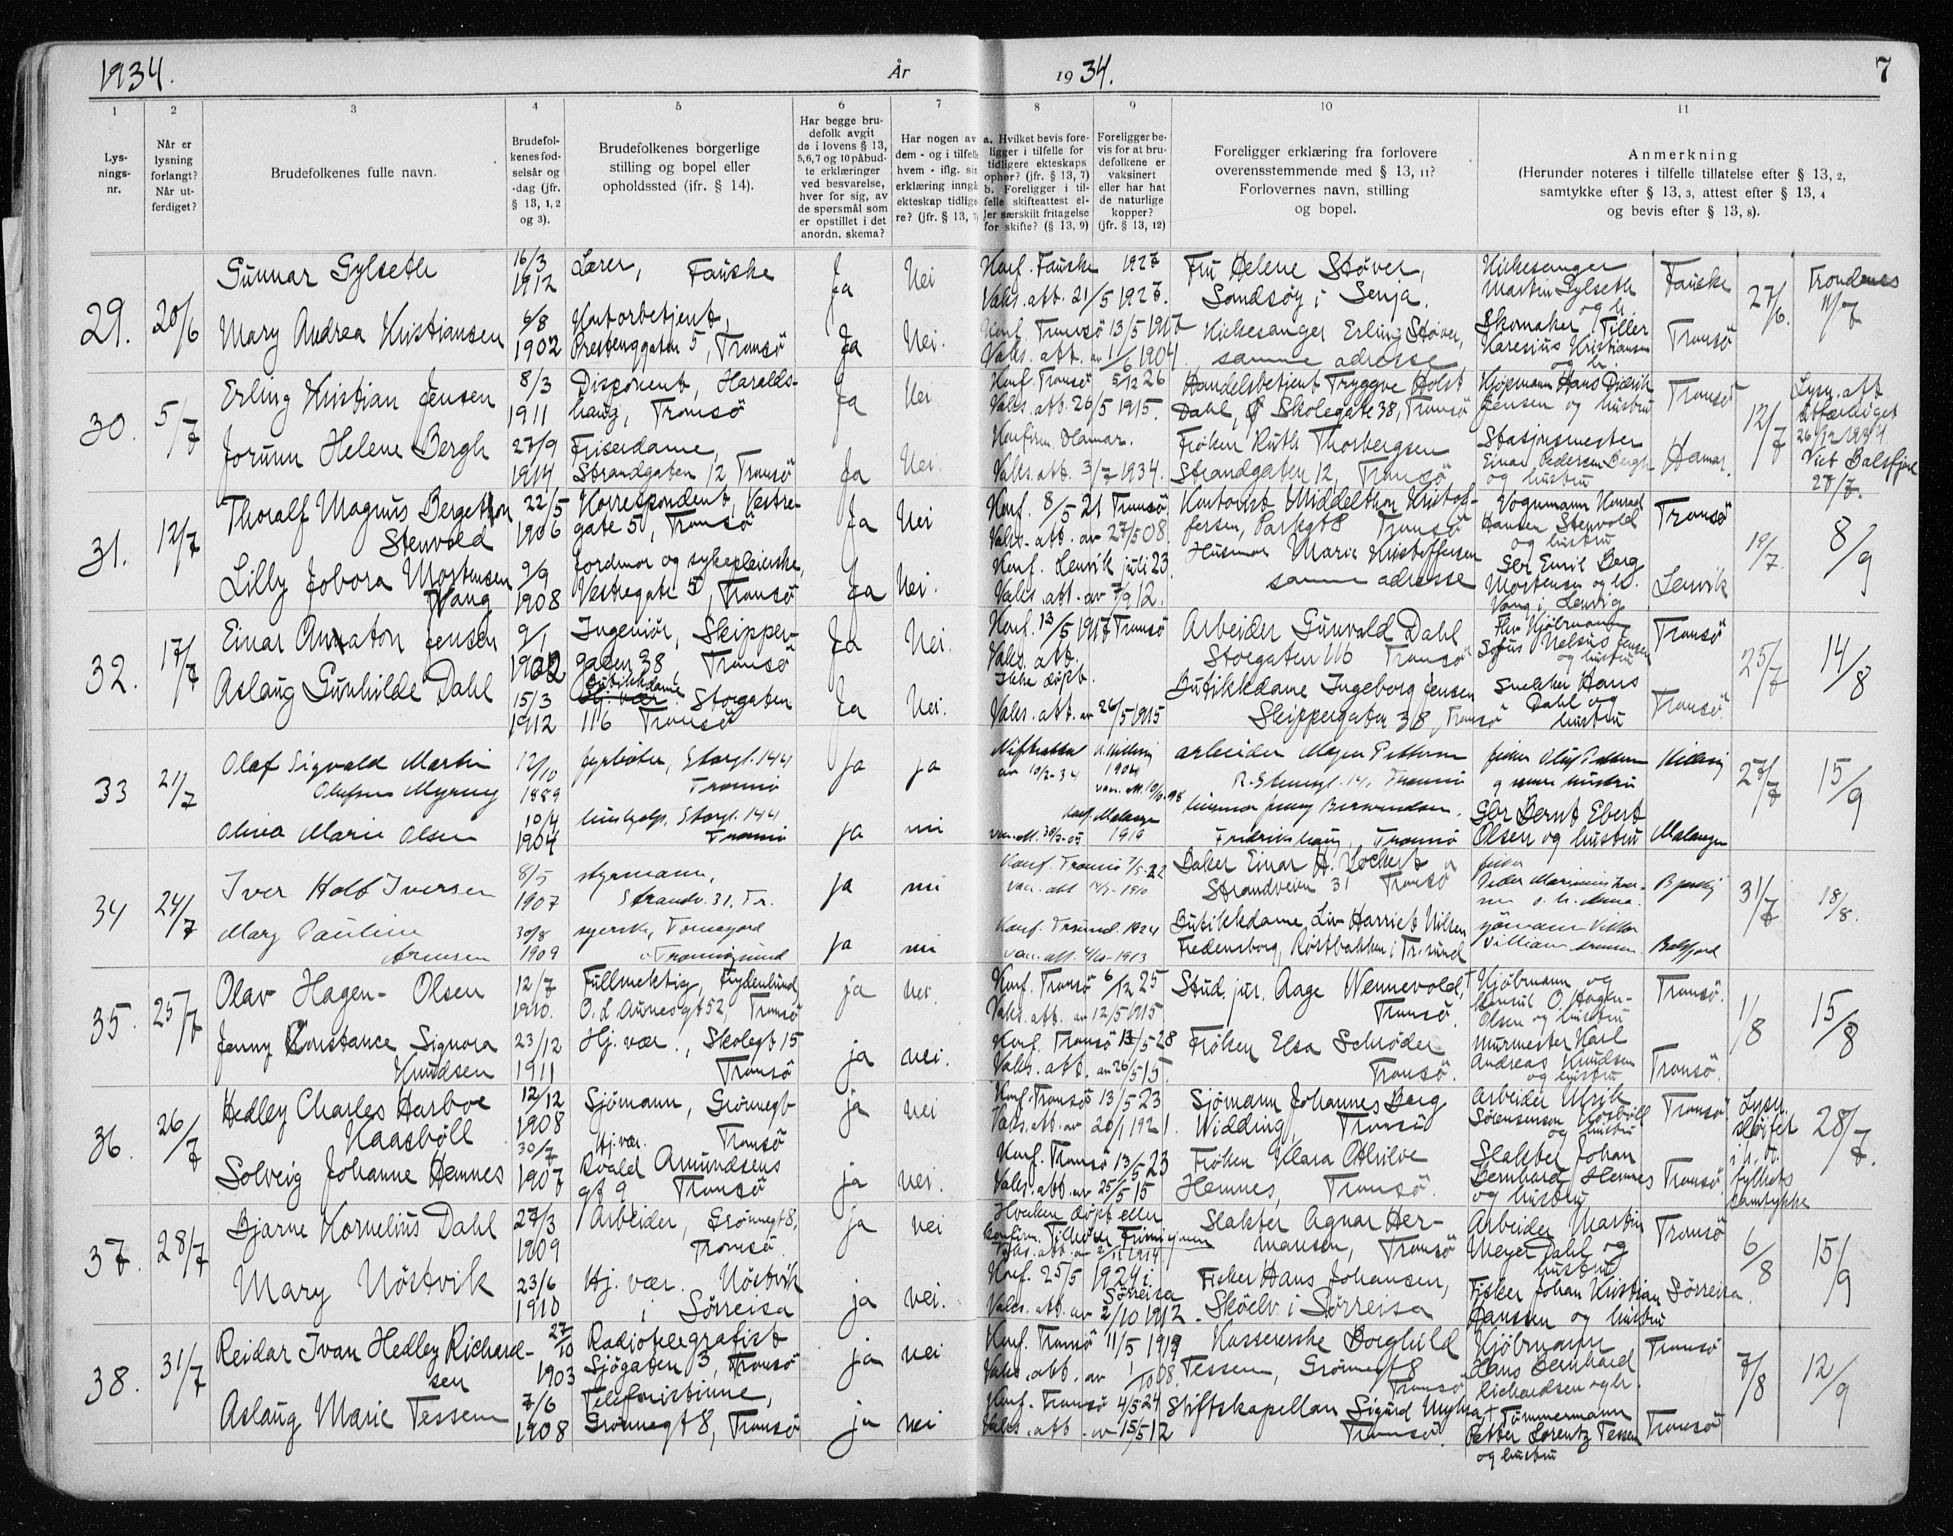 1934.
År
1934.
7
1
2
3
4
5
6
7
8
9
10
11
Lys-
nings-
nr.
Når er
lysning
forlangt?
Når ut-
ferdiget?
Brudefolkenes fulle navn.
Brudefol-
kenes fød-
selsår og
-dag (jfr.
§ 13, 1, 2
og 3).
Brudefolkenes borgerlige
stilling og bopel eller
opholdssted (ifr. § 14).
Har begge bru-
defolk avgit
de i lovens § 13,
5,6,7 og 10 påbud-
te erklæringer
ved besvarelse,
hver for sig, av
de spørsmål som
er opstillet i det
anordn. skema?
Har nogen av
dem - og i tilfelle
hvem - iflg. sin
erklæring inngått
ekteskap tidlige-
re? (jfr. § 13, 7)
a. Hvilket bevis fore-
ligger i tilfelle for
tidligere ekteskaps
ophør? (jfr. § 13, 7)
b. Foreligger i til-
felle skifteattest el-
ler særskilt fritagelse
for skifte? (§ 13, 9)
Foreligger be-
vis for at bru-
defolkene er
vaksinert
eller har hat
de naturlige
kopper?
(jfr. § 13, 12)
Foreligger erklæring fra forlovere
overensstemmende med § 13, 11?
Forlovernes navn, stilling
og bopel.
Anmerkning
(Herunder noteres i tilfelle tillatelse efter § 13, 2,
samtykke efter § 13, 3, attest efter § 13, 4
og bevis efter § 13, 8).
29. 20/6
Gunnar Gylseth
16/3 1912
Lærer, Fauske
Ja
Nei
Konf. Fauske 1927
Vaks. att. 21/5 1927.
Fru Helene Støver,
Sandsøy i Senja.
Kirkesanger
Martin Gylseth
og h.
Fauske
27/6.
Trondenes
11/7
Mary Andrea Kristiansen
6/8 1902
Kontorbetjent,
Prestenggaten 5, Tromsö
Ja
Nei.
Konf. Tromsö 13/5 1917
Vaks. att. av 1/6 1904
Kirkesanger Erling Støver,
samme adresse
Skomaker Tiller
Karesius Kristiansen
og h.
Tromsö
30. 5/7
Erling Kristian Jensen
8/3 1911
Disponent, Haralds-
haug, Tromsö
Ja
Nei.
Konf. Tromsö 5/12 26
Vaks. att. 26/5 1915.
Handelsbetjent Tryggve Holst
Dahl, Skolegate 38, Tromsö
Kjøpmann Hans Didrik
Jensen og hustru
Tromsö
12/7
Lysn. att
utfærdiget
26/12 1934
Viet Balsfjord
27/7.
Jorunn Helene Bergh
27/9 1914
Friserdame,
Strandgaten 12 Tromsö
Ja
Nei.
Konfirm. Hamar.
Vaks. att. 3/7 1934.
Frøken Ruth Thorbergsen
Strandgaten 12, Tromsö
Stasjonsmester
Einar Pedersen Bergh
og hustru
Hamar
31. 12/7
Thoralf Magnus Bergethon
Stenvold
22/5 1906
Korrespondent, Vestre-
gate 5, Tromsö
Ja
Nei
Konf. 8/5 21 Tromsö
Vaks. att. av 27/5 08.
Kontorist Middelthon Kristof-
fersen, Parkgt 8 Tromsö
Vognmann Konrad
Hansen Stenvold
og hustru
Tromsö
19/7.
8/9
Lilly Jobora Mortensen
Vang
9/9 1908
Jordmor og sykepleierske,
Vestregate 5, Tromsö
Ja
Nei.
Konf. Lenvik juli 23.
Vaks. att. av 7/9 12.
Husmor Marie Kristoffersen
samme adresse
Gbr Emil Berg
Mortensen og h.
Vang i Lenvig
Lenvik
32. 17/7
Einar Annaton Jensen
9/1 1902
Ingeniør, Skipper-
gaten 38, Tromsö
Ja
Nei.
Konf. 13/5 1917 Tromsö
Vaks. att.
Arbeider Gunvald Dahl
Storgaten 116 Tromsö
Fhv Kjøbmann
Sofus Nelsius Jensen
og hustru
Tromsö
25/7
14/8
Aslaug Gunhilde Dahl
15/3 1912
Butikkdame
Hj. vær. Storgaten
116 Tromsö
Ja
Nei.
Ikke døpt.
Vaks. att. av 26/5 1915
Butikkdame Ingeborg Jensen
Skippergaten 38, Tromsö
Snekker Hans
Dahl og
hustru
Tromsö.
33 21/7
Olaf Sigvald Martin
Olufsen Myreng
12/10 1889
fyrbøter, Storgt. 144
Tromsö
ja
ja
av 10/3-34
1904
arbeider
Tromsö
27/7
15/9
Olina Marie Olsen
10/4 1904
hushjelp, Storgt. 144
Tromsö
ja
nei
Konf. Malangen
1919
husmor Jenny
Fredrikshaug, Tromsö
Gbr Bernt Ebert
Olsen og hustru
Malangen
34 24/7
Iver Holt Iversen
8/5 1907
styrmann,
Strandv. 31, Tr.
ja
nei
Konf. Tromsö 7/5-22
Baker Einar H. Løchert
Strandveien 31 Tromsö
fisker
31/7
18/8.
Mary Pauline
Arnesen
30/8 1909
syerske, Tomasjord
i Tromsøysund
ja
nei
Konf. Trsund. 1924
Butikkdame Liv Harriet Nilsen
Fredensborg, Røstbakken i Tr.sund
sjømann Viktor
Villiam
Balsfjord
35. 25/7
Olav Hagen-Olsen
12/7 1910.
Fullmektig, Frydenlund,
O. L. Aunesgt 52, Tromsö
ja
nei.
Konf. Tromsö 6/12 25
Vaks. att. av 12/5 1915.
Stud. jur. Aage Wennevold,
Tromsö.
Kjøbmann og
konsul O. Hagen-
Olsen og hustru
Tromsö.
1/8
15/8
Jenny Constance Signora
Knudsen
23/12 1911
Hj. vær., Skolegt 15
Tromsö
ja
nei.
Konf. Tromsö 13/5 28
Vaks. att. av 26/5 15.
Frøken Elsa Schrøder
Tromsö.
Murmester Karl
Andreas Knudsen
og hustru
Tromsö.
36. 26/7
Hedley Charles Harboe
Kaasböll
12/12 1908
Sjømann, Grønnegt
Tromsö
ja
nei
Konf. Tromsö 13/5 23
Vaks. att. av 20/1 1921.
Sjømann Johannes Berg
Widding, Tromsö
Arbeider Ulrik
Sørensen Kåsböll
og hustru
Tromsö
Lysn.
sløifet
i h. t.
fylkets
samtykke
28/7.
Solveig Johanne Hemnes
30/7 1907
Hj. vær.
Roald Amundsens
gt 9 Tromsö
ja
nei.
Konf. Tromsö 13/5 23
Vaks. att. av 25/5 15
Frøken Klara Othilve
Hemnes, Tromsö.
Slakter Johan
Bernhard Hemnes
og hustru
Tromsö
37. 28/7
Bjarne Kornelius Dahl
27/3 1909
Arbeider, Grønnegt 8,
Tromsö.
ja
nei
Hverken døpt eller
konfirm. Tilhører Frimisjonen
Vaks. att. av 2/11 1914
Slakter Agnar Her-
mansen, Tromsö
Arbeider Martin
Meyer Dahl og
hustru
Tromsö
6/8
15/9
Mary Nöstvik
23/6 1910
Hj. vær. Nöstvik
i Sørreisa
ja
nei.
Konf. 25/5 1924 i
Sørreisa
Vaks. att. av 2/10 1912.
Fisker Hans Johansen,
Skøelv i Sørreisa
Fisker Johan Kristian
Hanssen og hustru
Sørreisa
38. 31/7
Reidar Ivan Hedley Richard-
sen
27/10 1903
Radiotelegrafist
Sjøgaten 3, Tromsö
ja
nei
Konf. Tromsö 11/5 1919
Vaks. att. av 1/10 08
Kassererske Borghild
Tessem, Grønnegt 8
Tromsö
Kjøbmann
Hans Bernhard
Richardsen og h.
Tromsö
7/8
12/9
Aslaug Marie Tessem
7/6 1908
Telefonistinne,
Grønnegt 8, Tromsö
ja
nei
Konf. Tromsö 4/5 24
Vaks. att. av 15/5 12
Stiftskapellan Sigurd
Tromsö.
Tømmermann
Petter Lorentz Tessem
og hustru
Tromsö